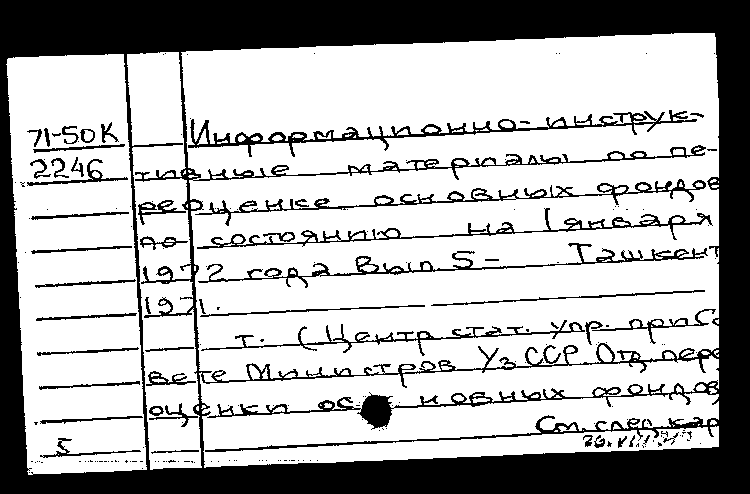 71-50К Информационно-инструк-
2246 тивные материалы по пе-
реоценке основных фондов
по состоянию на 1 января
1972 года Вып 5- Ташкент
1971.
т. (Центр стат. упр. при Со
вете Министров УзССР. Отд. пере
оценки основных фондов
См. след. кар
5